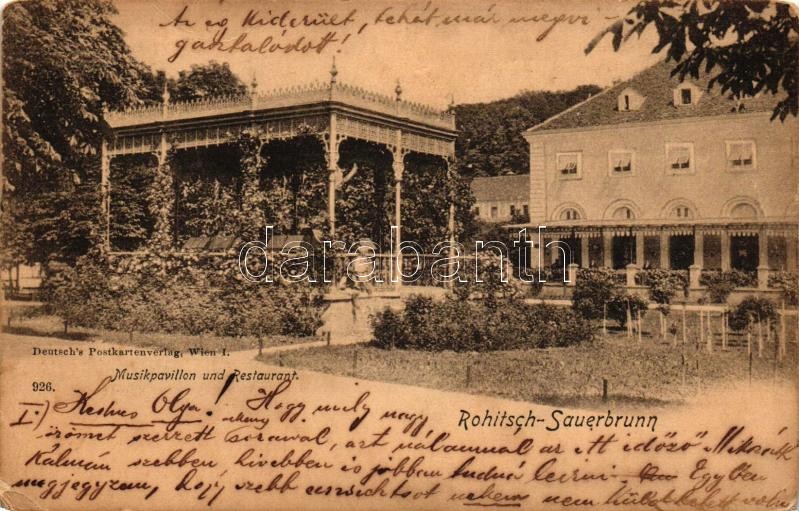 Az eg kiderült, tehát már megvi-
gasztalódott!
darabanth
Deutsch's Postkartenverlag, Wien I.
Musikpavillon und Restaurant.
926.
Rohitsch-Sauerbrunn
I.) Kedves Olga! Hogy mily nagy
örömet szerzett nekem soraival, azt nálamnál az itt időző Mikszáth
Kálmán szebben, hívebben is jobban tudná leirni. Egyben
megjegyzem, hogy szebb nekem nem küldhetett volna